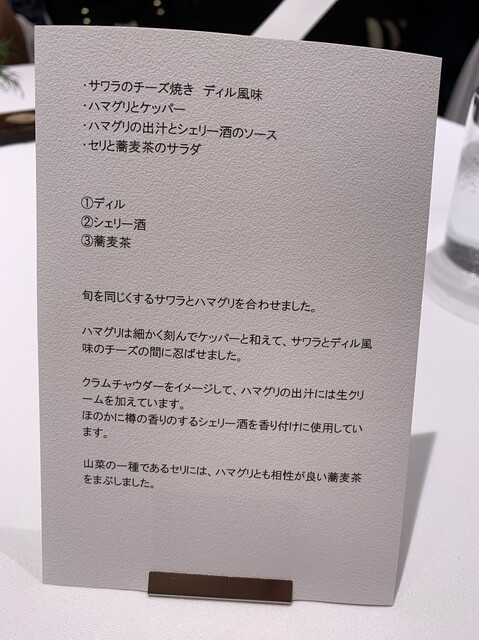 ・サワラのチーズ焼き ディル風味
・ハマグリとケッパー
・ハマグリの出汁とシェリー酒のソース
・セリと蕎麦茶のサラダ
①ディル
②シェリー酒
③蕎麦茶
旬を同じくするサワラとハマグリを合わせました。
ハマグリは細かく刻んでケッパーと和えて、サワラとディル風
味のチーズの間に忍ばせました。
クラムチャウダーをイメージして、ハマグリの出汁には生クリ
ームを加えています。
ほのかに樽の香りのするシェリー酒を香り付けに使用してい
ます。
山菜の一種であるセリには、ハマグリとも相性が良い蕎麦茶
をまぶしました。